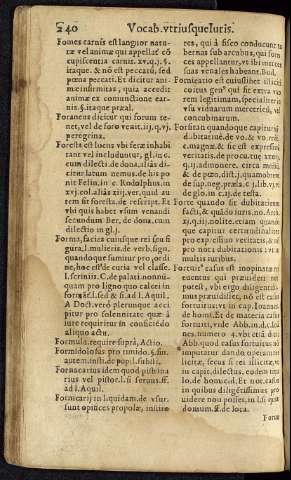 240 Vocab. vtriusque Iuris.
Fomes carnis est languor natu-
ræ vel animæ qui appellat̃ cō
cupiscentia carnis. xv. q. j. §.
itaque. & nō est peccatū, sed
pœna peccati. Et dicitur ani-
mæ infirmitas, quia accedit
animæ ex coniunctione car-
nis. §. itaque præal.
Foraneus dicitur qui forum te-
net, vel de foro venit. iij. q. vj.
peregrina.
Foresta est locus vbi feræ inhabi
tant vel includuntur, gl. in c.
cum dilecti. de dona. aliàs di-
citur latum nemus. de his po
nit Felin. in c. Rodulphus. in
xvj. col. aliàs xiij. ver. quid au
tem sit foresta. de rescript. Et
vbi quis habet vsum venandi
secundum Ber. de dona. cum
dilectio in gl. j.
Forma, facies cuiusque rei seu fi
gura. l. mulieris. de verb. sign.
quandoque sumitur pro ordi
ne, hoc est de curia vel classe.
l. scriniis. C. de palati.
quam pro ligno quo calcei in
formāt̃. l. sed & si. ad l. Aquil.
A Doct. verò plerunque acci
pitur pro solennitate quæ à
iure requiritur in conficiēdo
aliquo actu.
Formula. require suprà, Actio.
Formidolosus pro timido. §. sin
autem. insti. de pupil. substi.
Fornacarius idem quod pistrina
rius vel pistor. l. si seruus. ff.
ad l. Aquil.
Fornicarij in l. quidam. de vsur.
sunt opifices propolæ, insitre
res, qui à fisco conducunt ta
bernas sub arcubus, qui forni
ces appellantur, vt ibi merces
suas venales habeant. Bud.
Fornicatio est cuiuslibet illiciti
coitus genus qui sit extra vxo
rem legitimam, specialiter in
vsu viduarum mercetricū, vel
concubinarum.
Forsitan quandoque capitur
dubitatiuè. de vo. & vo. red.
c. magnæ. & sic est expressiuū
veritatis. de procu. tuæ xxvj.
q. ij. admonere. circa medi.
& de pœn. dist. j. quamobrem
de sup. neg. præla. c. j. li. vj. &
de glo. in c. aj. de testa.
Forte quando sic dubitatiuum
facti, & quādo iuris. no. Arch.
xj. q. iij. nolite. etiam quando
que capitur certitudinaliter
pro expressiuo veritatis, & nō
pro nota dubitationis. vt in
multis iuribus.
Fortuitus casus est inopinatæ rei
euentus qui præuideri non
potest, vbi ergo diligentissi-
mus præuidisset, nō est casus
fortuitus: vt in cap. Ioannes.
de homi. Et de materia casus
fortuiti, vide Abb.
nes. numero 4. vbi etiā dicit
Abb. quod casus fortuitus nō
imputatur danti operam rei
licitæ, secus si rei illicitæ, vt
in capit. dilectus. eodem titu
lo. de homicid. Et not. casus
in quibus diligentissimus præ
uidere nou posset, in l. si quis
domum. ff. de loca.
Fortu